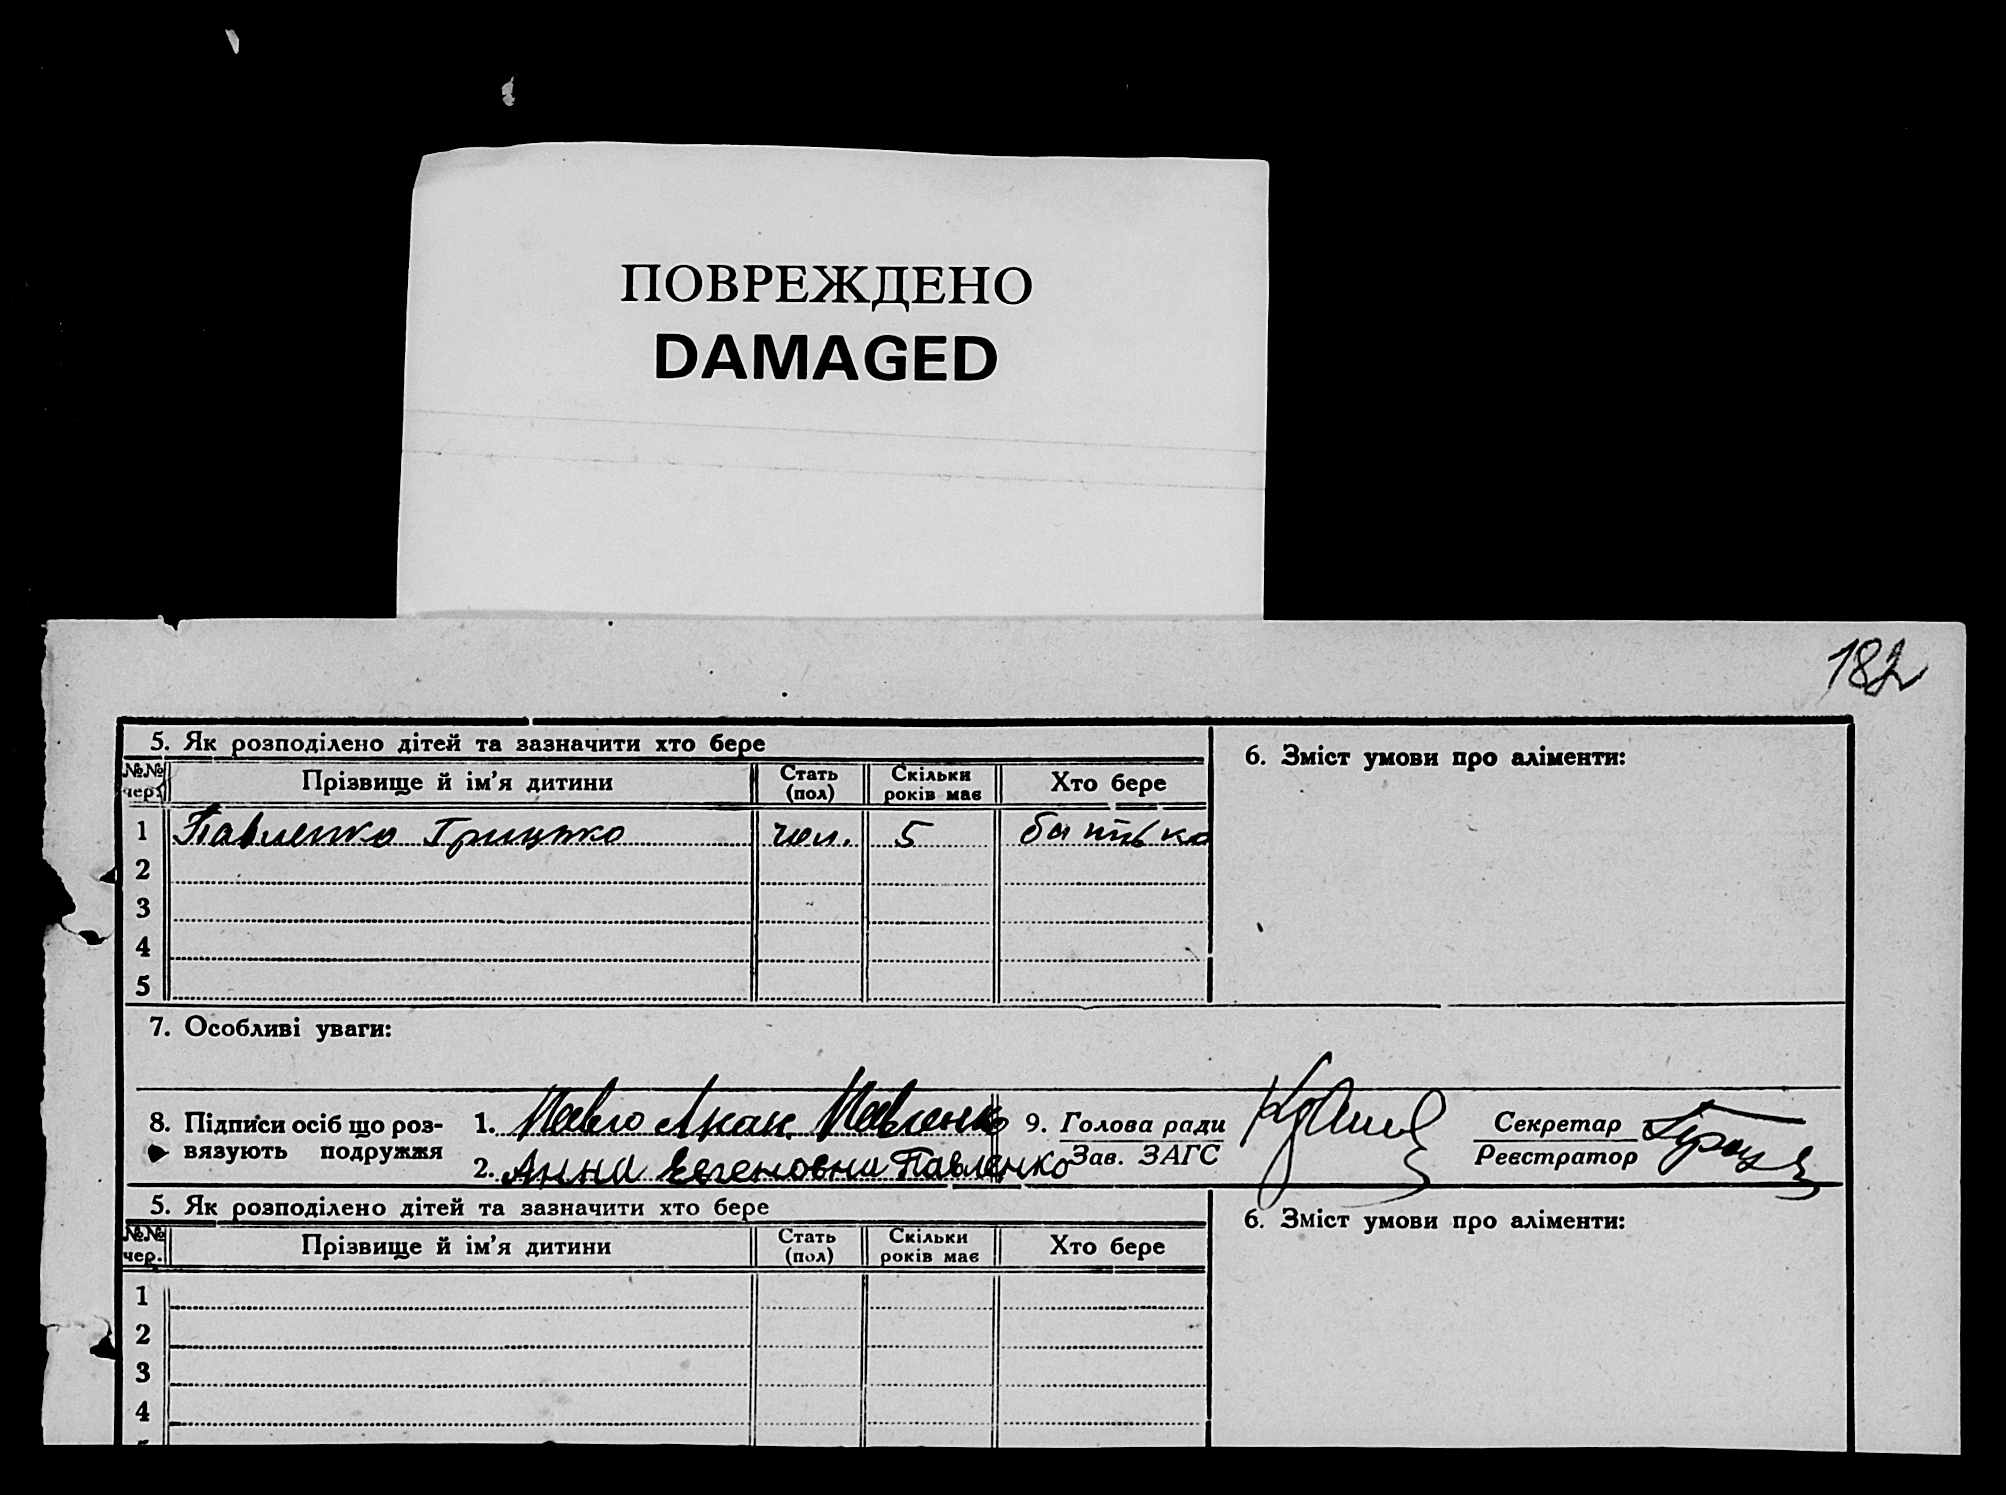 ПОВРЕЖДЕНО
DAMAGED
182
5. Як розподілено дітей та зазначити хто бере
6. Зміст умови про аліменти:
№№ чер. Прізвище й ім'я дитини Стать (пол) Скільки років має Хто бере
1 Павленко Грицько чол. 5 батько
2
3
4
5
7. Особливі уваги:
8. Підписи осіб що роз-
вязують подружжя
1. Павло Павленко
2. Анна Евгеновна Павленко
9. Голова ради
Зав. ЗАГС
Секретар
Реєстратор
5. Як розподілено дітей та зазначити хто бере
6. Зміст умови про аліменти:
№№ чер. Прізвище й ім'я дитини Стать (пол) Скільки років має Хто бере
1
2
3
4